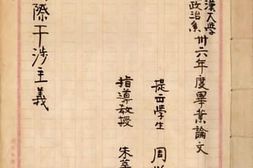 漢大學
政治系卅六年度畢業論文
際干涉主義
提出學生 周
指導教授 朱